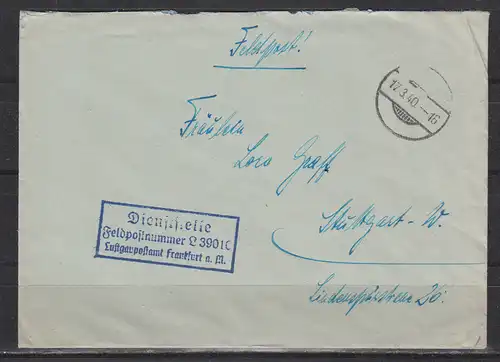 Feldpost!
17.3.40.-16
Fräulein
Lore Graff
Stuttgart-W.
Lindenspürstrasse 26.
Dienststelle
Feldpostnummer L 39010
Luftgaupostamt Frankfurt a. M.